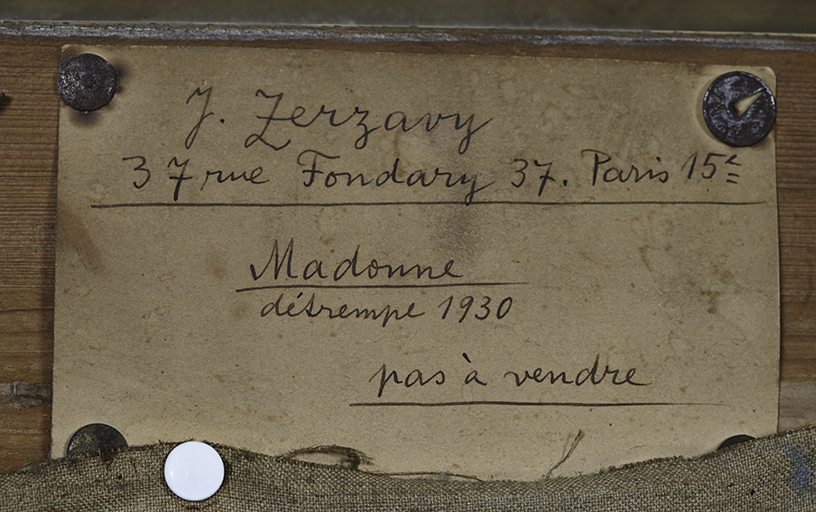 J. Zerzavy
37 rue Fondary 37. Paris 15e
Madonne
détrempe 1930
pas à vendre